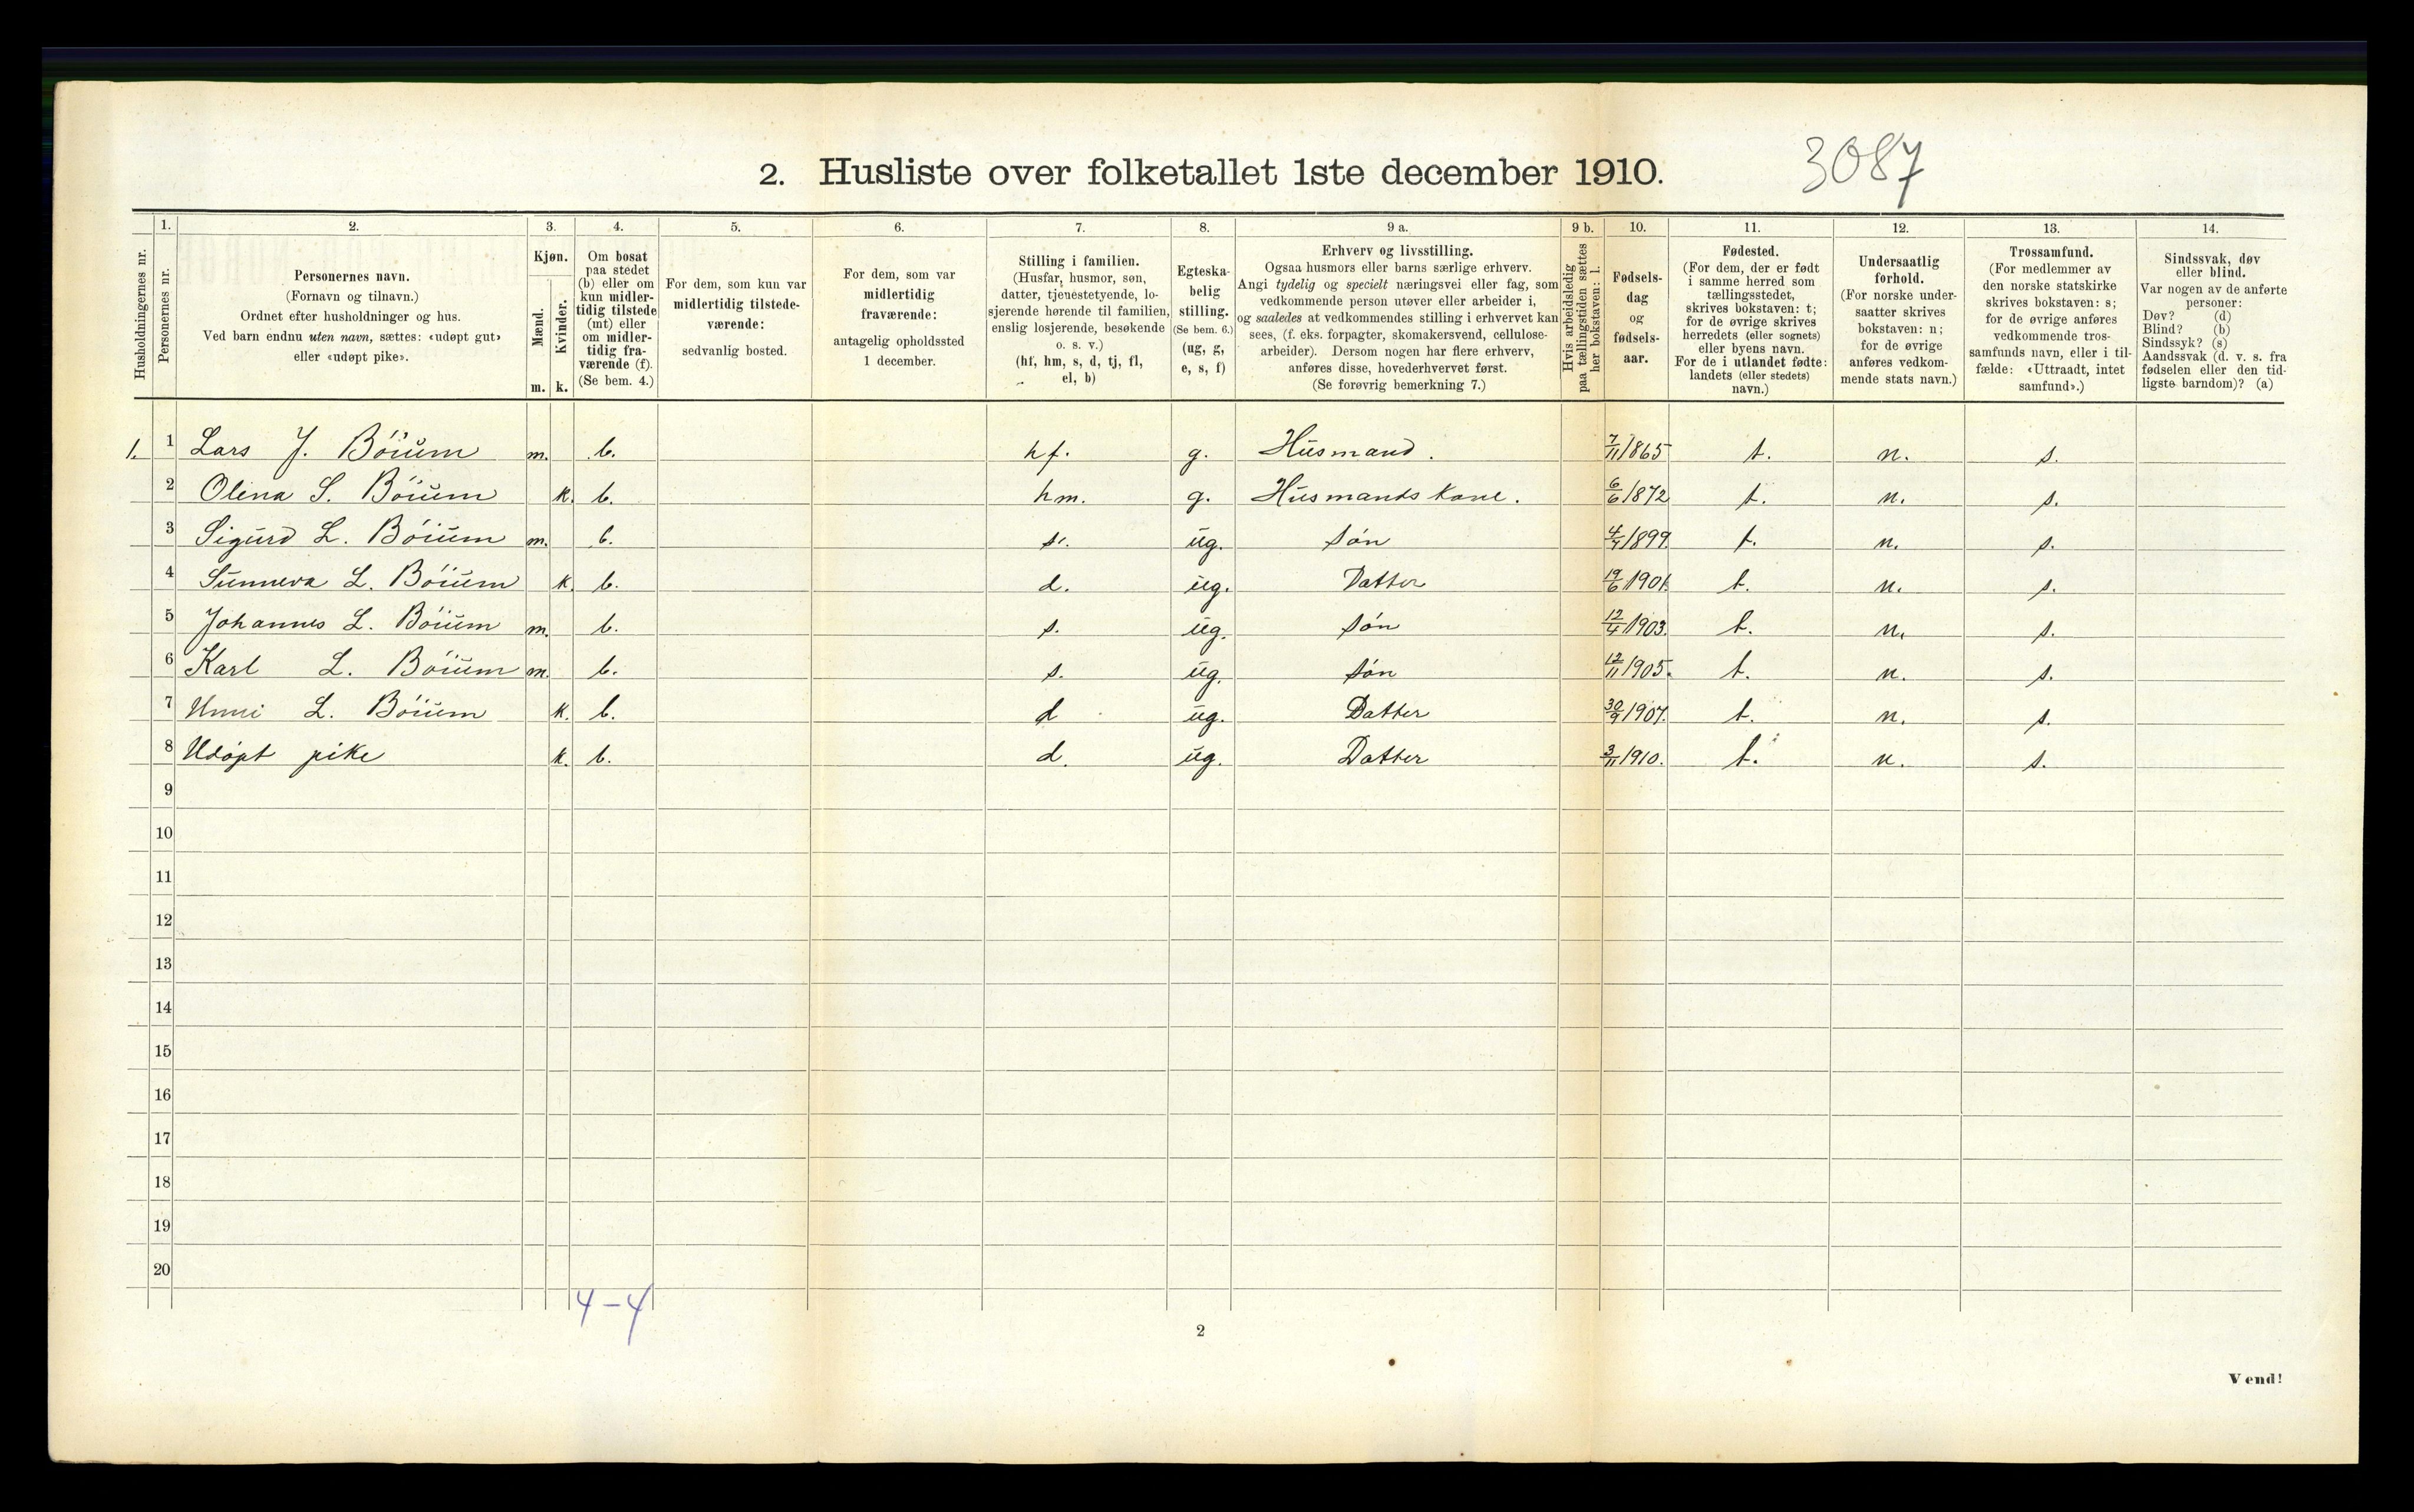 2. Husliste over folketallet 1ste december 1910.
3087
1. 2. 3. 4. 5. 6. 7. 8. 9 a. 9 b. 10. 11. 12. 13. 14.
Husholdningernes nr.
Personernes nr.
Personernes navn.
(Fornavn og tilnavn.)
Ordnet efter husholdninger og hus.
Ved barn endnu uten navn, sættes: «udøpt gut»
eller «udøpt pike».
Kjøn.
Mænd.
Kvinder.
m. k.
Om bosat
paa stedet
(b) eller om
kun midler-
tidig tilstede
(mt) eller
om midler-
tidig fra-
værende (f).
(Se bem. 4.)
For dem, som kun var
midlertidig tilstede-
værende:
sedvanlig bosted.
For dem, som var
midlertidig
fraværende:
antagelig opholdssted
1 december.
Stilling i familien.
(Husfar, husmor, søn,
datter, tjenestetyende, lo-
sjerende hørende til familien,
enslig losjerende, besøkende
o. s. v.)
(hf, hm, s, d, tj, fl,
el, b)
Egteska-
belig
stilling.
(Se bem. 6.)
(ug, g,
e, s, f)
Erhverv og livsstilling.
Ogsaa husmors eller barns særlige erhverv.
Angi tydelig og specielt næringsvei eller fag, som
vedkommende person utøver eller arbeider i,
og saaledes at vedkommendes stilling i erhvervet kan
sees, (f. eks. forpagter, skomakersvend, cellulose-
arbeider). Dersom nogen har flere erhverv,
anføres disse, hovederhvervet først.
(Se forøvrig bemerkning 7.)
Hvis arbeidsledig
paa tællingstiden sættes
her bokstaven: l.
Fødsels-
dag
og
fødsels-
aar.
Fødested.
(For dem, der er født
i samme herred som
tællingsstedet,
skrives bokstaven: t;
for de øvrige skrives
herredets (eller sognets)
eller byens navn.
For de i utlandet fødte:
landets (eller stedets)
navn.)
Undersaatlig
forhold.
(For norske under-
saatter skrives
bokstaven: n;
for de øvrige
anføres vedkom-
mende stats navn.)
Trossamfund.
(For medlemmer av
den norske statskirke
skrives bokstaven: s;
for de øvrige anføres
vedkommende tros-
samfunds navn, eller i til-
fælde: «Uttraadt, intet
samfund».)
Sindssvak, døv
eller blind.
Var nogen av de anførte
personer:
Døv? (d)
Blind? (b)
Sindssyk? (s)
Aandssvak (d. v. s. fra
fødselen eller den tid-
ligste barndom)? (a)
1. 1 Lars J. Böium m. b. hf. g. Husmand. 7/11 1865 t. n. s.
2 Olina S. Böium k. b. hm. g. Husmands kone. 6/6 1872 t. n. s.
3 Sigurd L. Böium m. b. s. ug. søn 4/7 1899. t. n. s.
4 Sunneva L. Böium k. b. d. ug. Datter 19/6 1901. t. n. s.
5 Johannes L. Böium m. b. s. ug. søn 12/4 1903. t. n. s.
6 Karl L. Böium m. b. s. ug. søn 12/11 1905. t. n. s.
7 Unni L. Böium k. b. d ug. Datter 30/9 1907. t. n. s.
8 Udøpt pike k. b. d. ug. Datter 3/11 1910. t. n. s.
9
10
11
12
13
14
15
16
17
18
19
20
4 - 4
2
Vend!